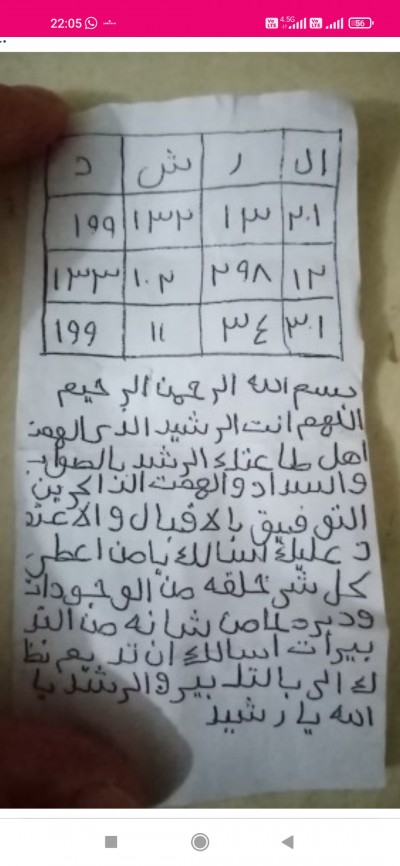 22:05
4.5G
56
ال ر ش د
٢٠١ ١٣ ١٣٢ ١٩٩
١٢ ٢٩٨ ١٠٢ ١٣٣
٣٠١ ٣٤ ١١ ١٩٩
بسم الله الرحمن الرحيم
اللهم انت الرشيد الذى الهمت
اهل طاعتك الرشد بالصواب
والسداد والهمت الذاكرين
التوفيق بالاقبال والاعتما
د عليك اسالك يا من اعطى
كل شى خلقه من الوجودات
ودبره شانه من التد
بيرات اسالك ان تديم نظ
رك الى بالتدبير والرشد يا
الله يا رشيد